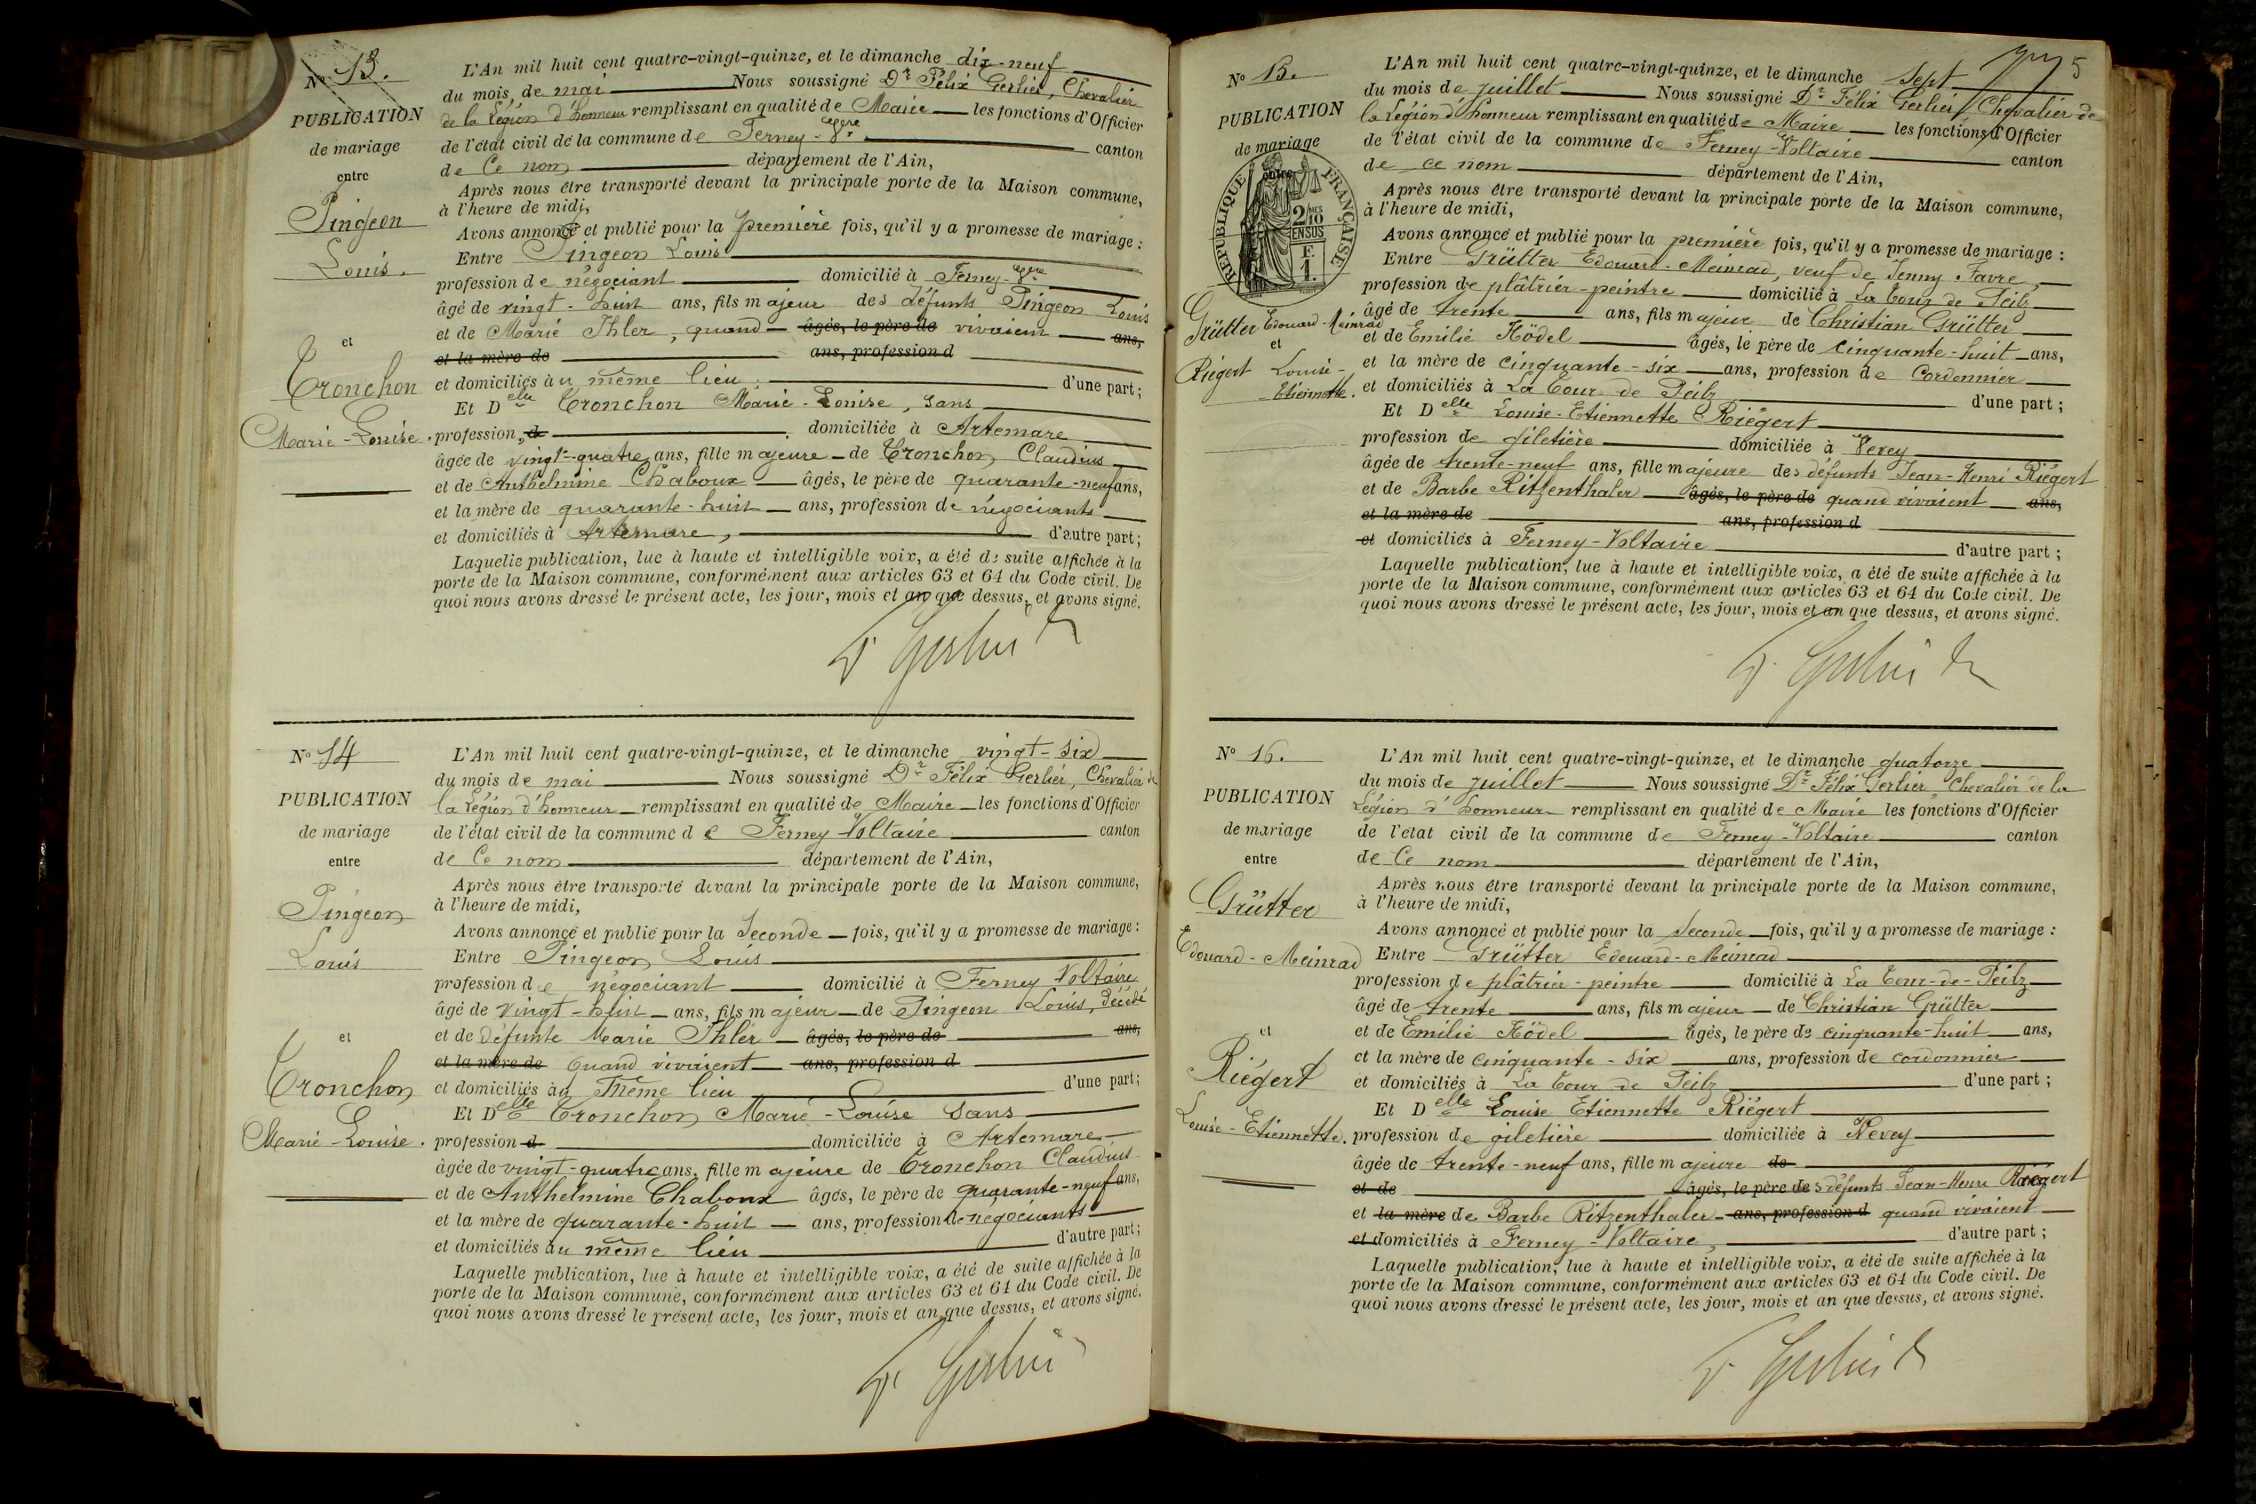 N° 13.
PUBLICATION
de mariage
entre
Pingeon
Louis.
et
Tronchon
Marie-Louise.
L'An mil huit cent quatre-vingt-quinze, et le dimanche dix-neuf
du mois de mai Nous soussigné Dr Félix Gerlier, Chevalier
de la Légion d'honneur remplissant en qualité de Maire les fonctions d'Officier
de l'état civil de la commune de Ferney-Vre canton
de Ce nom département de l'Ain,
Après nous être transporté devant la principale porte de la Maison commune,
à l'heure de midi,
Avons annoncé et publié pour la première fois, qu'il y a promesse de mariage :
Entre Pingeon Louis
profession de négociant domicilié à Ferney-Vre
âgé de vingt-huit ans, fils majeur des défunts Pingeon Louis
et de Marie Ihler, quand âgés, le père de vivaient ans,
et la mère de ans, profession d
et domiciliés au même lieu d'une part ;
Et Delle Tronchon Marie-Louise, sans
profession, d domiciliée à Artemare
âgée de vingt-quatre ans, fille majeure de Tronchon Claudius
et de Anthelmine Chaboux âgés, le père de quarante-neuf ans,
et la mère de quarante-huit ans, profession de négociants
et domiciliés à Artemare, d'autre part ;
Laquelle publication, lue à haute et intelligible voix, a été de suite affichée à la
porte de la Maison commune, conformément aux articles 63 et 64 du Code civil. De
quoi nous avons dressé le présent acte, les jour, mois et an que dessus, et avons signé.
F. Gerlier Dr
N° 14
PUBLICATION
de mariage
entre
Pingeon
Louis
et
Tronchon
Marie-Louise.
L'An mil huit cent quatre-vingt-quinze, et le dimanche vingt-six
du mois de mai Nous soussigné Dr Félix Gerlier, Chevalier de
la Légion d'honneur remplissant en qualité de Maire les fonctions d'Officier
de l'état civil de la commune de Ferney-Voltaire canton
de Ce nom département de l'Ain,
Après nous être transporté devant la principale porte de la Maison commune,
à l'heure de midi,
Avons annoncé et publié pour la Seconde fois, qu'il y a promesse de mariage :
Entre Pingeon Louis
profession de négociant domicilié à Ferney Voltaire
âgé de vingt-huit ans, fils majeur de Pingeon Louis, décédé
et de défunte Marie Ihler âgés, le père de ans,
et la mère de quand vivaient ans, profession d
et domiciliés au même lieu d'une part ;
Et Delle Tronchon Marie-Louise sans
profession d domiciliée à Artemare
âgée de vingt-quatre ans, fille majeure de Tronchon Claudius
et de Anthelmine Chaboux âgés, le père de quarante-neuf ans,
et la mère de quarante-huit ans, profession de négociants
et domiciliés au même lieu d'autre part ;
Laquelle publication, lue à haute et intelligible voix, a été de suite affichée à la
porte de la Maison commune, conformément aux articles 63 et 64 du Code civil. De
quoi nous avons dressé le présent acte, les jour, mois et an que dessus, et avons signé.
F. Gerlier Dr
5
N° 15.
PUBLICATION
de mariage
entre
RÉPUBLIQUE FRANÇAISE
2/10 EN SUS
F
1.
Grütter Edouard-Meinrad
et
Riégert Louise-
Etiennette.
L'An mil huit cent quatre-vingt-quinze, et le dimanche Sept
du mois de juillet Nous soussigné Dr Félix Gerlier, Chevalier de
la Légion d'honneur remplissant en qualité de Maire les fonctions d'Officier
de l'état civil de la commune de Ferney-Voltaire canton
de ce nom département de l'Ain,
Après nous être transporté devant la principale porte de la Maison commune,
à l'heure de midi,
Avons annoncé et publié pour la première fois, qu'il y a promesse de mariage :
Entre Grütter Edouard-Meinrad, veuf de Jenny Favre,
profession de plâtrier-peintre domicilié à La Tour de Peilz
âgé de trente ans, fils majeur de Christian Grütter
et de Emilie Hödel âgés, le père de cinquante-huit ans,
et la mère de cinquante-six ans, profession de cordonnier
et domiciliés à La Tour de Peilz d'une part ;
Et Delle Louise-Etiennette Riégert
profession de giletière domiciliée à Vevey
âgée de trente-neuf ans, fille majeure des défunts Jean-Henri Riégert
et de Barbe Ritzenthaler âgés, le père de quand vivaient ans,
et la mère de ans, profession d
et domiciliés à Ferney-Voltaire d'autre part ;
Laquelle publication, lue à haute et intelligible voix, a été de suite affichée à la
porte de la Maison commune, conformément aux articles 63 et 64 du Code civil. De
quoi nous avons dressé le présent acte, les jour, mois et an que dessus, et avons signé.
F. Gerlier Dr
N° 16.
PUBLICATION
de mariage
entre
Grütter
Edouard-Meinrad
et
Riégert
Louise-Etiennette.
L'An mil huit cent quatre-vingt-quinze, et le dimanche quatorze
du mois de juillet Nous soussigné Dr Félix Gerlier Chevalier de la
Légion d'honneur remplissant en qualité de Maire les fonctions d'Officier
de l'état civil de la commune de Ferney-Voltaire canton
de Ce nom département de l'Ain,
Après nous être transporté devant la principale porte de la Maison commune,
à l'heure de midi,
Avons annoncé et publié pour la Seconde fois, qu'il y a promesse de mariage :
Entre Grütter Edouard-Meinrad
profession de plâtrier-peintre domicilié à La Tour-de-Peilz
âgé de trente ans, fils majeur de Christian Grütter
et de Emilie Hödel âgés, le père de cinquante-huit ans,
et la mère de cinquante-six ans, profession de cordonnier
et domiciliés à La Tour de Peilz d'une part ;
Et Delle Louise Etiennette Riégert
profession de giletière domiciliée à Vevey
âgée de trente-neuf ans, fille majeure de
et de âgés, le père de s défunts Jean-Henri Riégert
et la mère de Barbe Ritzenthaler ans, profession d quand vivaient
et domiciliés à Ferney-Voltaire, d'autre part ;
Laquelle publication, lue à haute et intelligible voix, a été de suite affichée à la
porte de la Maison commune, conformément aux articles 63 et 64 du Code civil. De
quoi nous avons dressé le présent acte, les jour, mois et an que dessus, et avons signé.
F. Gerlier Dr